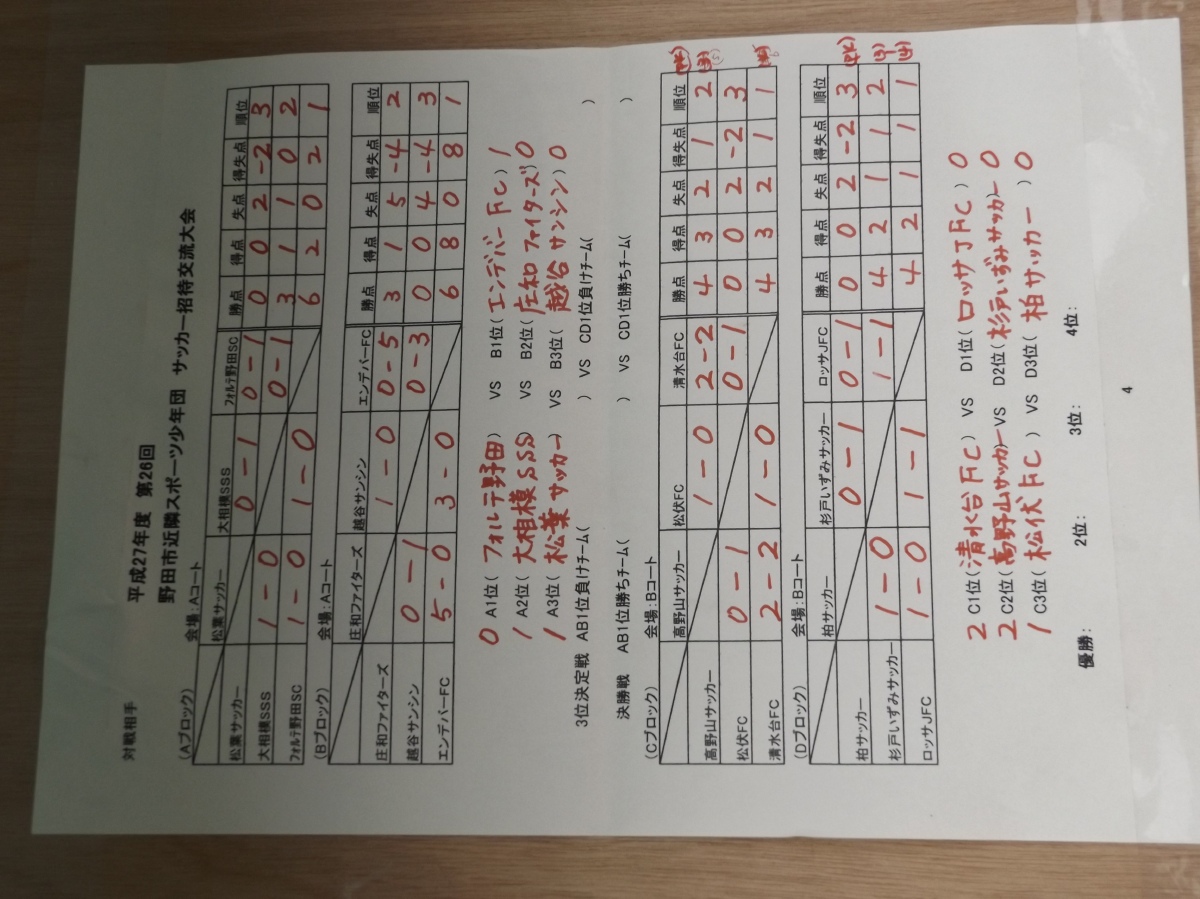 平成27年度 第26回
野田市近隣スポーツ少年団 サッカー招待交流大会
対戦相手
(Aブロック) 会場:Aコート
松葉サッカー 大相模SSS フォルテ野田SC 勝点 得点 失点 得失点 順位
松葉サッカー 0-1 0-1 0 0 2 -2 3
大相模SSS 1-0 0-1 3 1 1 0 2
フォルテ野田SC 1-0 1-0 6 2 0 2 1
(Bブロック) 会場:Aコート
庄和ファイターズ 越谷サンシン エンデバーFC 勝点 得点 失点 得失点 順位
庄和ファイターズ 1-0 0-5 3 1 5 -4 2
越谷サンシン 0-1 0-3 0 0 4 -4 3
エンデバーFC 5-0 3-0 6 8 0 8 1
0 A1位(フォルテ野田) VS B1位(エンデバーFC) 1
1 A2位(大相模SSS) VS B2位(庄和ファイターズ) 0
1 A3位(松葉サッカー) VS B3位(越谷サンシン) 0
3位決定戦 AB1位負けチーム( ) VS CD1位負けチーム( )
決勝戦 AB1位勝ちチーム( ) VS CD1位勝ちチーム( )
(Cブロック) 会場:Bコート
高野山サッカー 松伏FC 清水台FC 勝点 得点 失点 得失点 順位
高野山サッカー 1-0 2-2 4 3 2 1 2
松伏FC 0-1 0-1 0 0 2 -2 3
清水台FC 2-2 1-0 4 3 2 1 1
(Dブロック) 会場:Bコート
柏サッカー 杉戸いずみサッカー ロッサJFC 勝点 得点 失点 得失点 順位 (PK)
柏サッカー 0-1 0-1 0 0 2 -2 3
杉戸いずみサッカー 1-0 1-1 4 2 1 1 2 (3)
ロッサJFC 1-0 1-1 4 2 1 1 1 (4)
2 C1位(清水台FC) VS D1位(ロッサJFC) 0
2 C2位(高野山サッカー VS D2位(杉戸いずみサッカー 0
1 C3位(松伏FC) VS D3位(柏サッカー) 0
優勝: 2位: 3位: 4位:
4